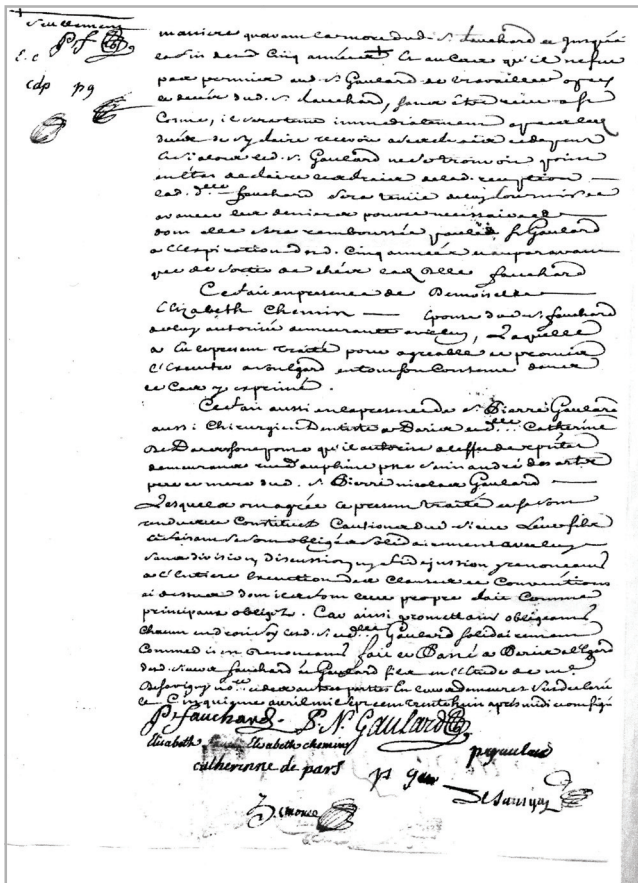 seullement
P f
E. C
cdp pg
maniere qu'avant la mort dud. s. fauchard et jusqu'à
la fin desd. Cinq années Et au Cas qu'il ne fut
pas permis aud. s. Gaulard de travailler après
le deceds dud. s. fauchard, sans être reçu a st
Cosme, il sera tenu immediatement après led.
deceds de s'y faire recevoir
Et si alors led. s. Gaulard ne se trouvoit point
en état de faire les frais de lad. reception
lad. d.elle fauchard sera tenüe de luy fournir et
avancer les deniers pour ce necessaires
dont elle sera remboursée par led. s. Gaulard
a l'Expiration desd. Cinq années et auparavant
que de sortir de chés lad. Delle fauchard
Ce fait en presence de Demoiselle
Elizabeth Chemin Epouse dud. s. fauchard
de luy autorisée demeurante avec luy, Laquelle
a Eu le present traité pour agreable et promis
l'Executer a son Egard en tout son Contenu dans
le Cas y exprimé.
Ce fait aussi en la presence du s. Pierre Gaulard
aussi Chirurgien Dentiste a Paris et d.elle Catherine
De Pars son epouse qu'il autorise a l'effet des presentes
demeurans rue Dauphine psse Saint andré des arts
pere et mere dud. s. Pierre nicolas Gaulard
Lesquels ont agréé le present traité et se sont
rendus et Constitués Cautions dud. sieur Leur fils
Ce faisant se sont obligés solidairement avec luy
sans division, discussion ny fidejussion y renonceans
a l'Entiere Execution des Clauses et Conventions
ci dessus dont ils font leur propre fait Comme
principaux obligés. Car ainsi promettans obligeans
Chacun en droit soy lesd. s. et d.elle Gaulard solidairement
Comme dit est Renonceans fait et Passé a Paris a l'Egard
desd. sieurs fauchard et Gaulard fils en l'Etude de me
De Savigny no.re et des autres parties En leurs demeures sus declarées
le Cinq avril mil sept cent trente huit après midi et ont signé
P. fauchard P. N. Gaulard
Elisabeth chemin
catherinne de pars
p gaulard
De Savigny